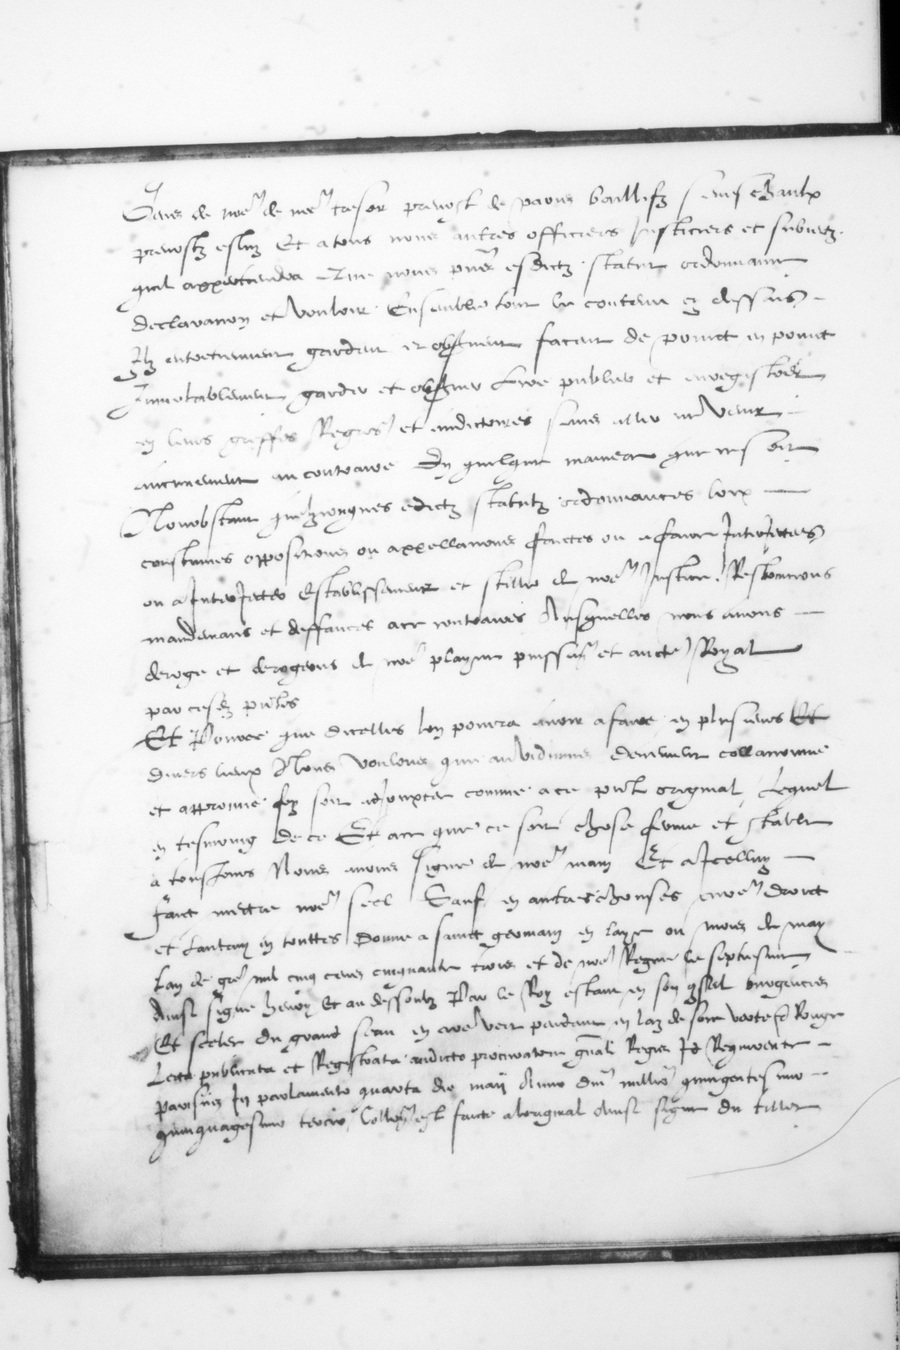 Gens de nore de nore tresor prevost de paris baillifz seneschaulx
prevostz esluz Et a tous nous autres officiers Justiciers et subiectz
quil appartiendra Que nous pntes esdictz statut ordonnance
declaration et vouloir Ensemble tout le contenu cy dessus
Ilz entretiennent gardent et observent facent de poinct en poinct
Inviolablement garder et observer Lire publier et enregistrer
en leurs greffes Regres et auditoires sans aller ne venir
aucunement au contraire En quelque maniere que ce soit
Nonobstant quelzconques edictz statutz ordonnances loix
coustumes oppositions ou appellations faictes ou a faire Interjectees
ou a Interjecter Establissement et stille de nore Justice Restrinctions
mandemens et deffances ace contraires Ausquelles nous avons
deroge et derogeons de nore plaine puissance et aucte Royal
par cesdz pntes
Et Pource que dicelles lon pourra avoir a faire en plusieurs Et
divers lieux Nous voulons que au vidimus deuement collationne
et approuve foy soit adjouxtee comme a ce pnt original Lequel
en tesmoing de ce Et ace que ce soit chose ferme et stable
a tousjours Nous avons signe de nore main Et a Icelluy
faict mectre nore seel Sauf en autres chouses nore droict
et lautruy en touttes Donne a sainct germain en laye ou mois de may
Lan de gre mil cinq cens cinquante trois et de nore Regne le septiesme
Ainsi signe henry Et au dessoubz Par le Roy estant en son conseil bourgeoies
Et seelee du grand seau en cire vert pendant en laz de soie verte et Rouge
Lecta publicata et Registrata audicto procuratore gnali Regis Id Requirente
parisiis In parlamento quarta die maii Anno dni millmo quingentesimo
quinquagesimo tercio Collaon est faicte a loriginal Ainsi signe du tillet